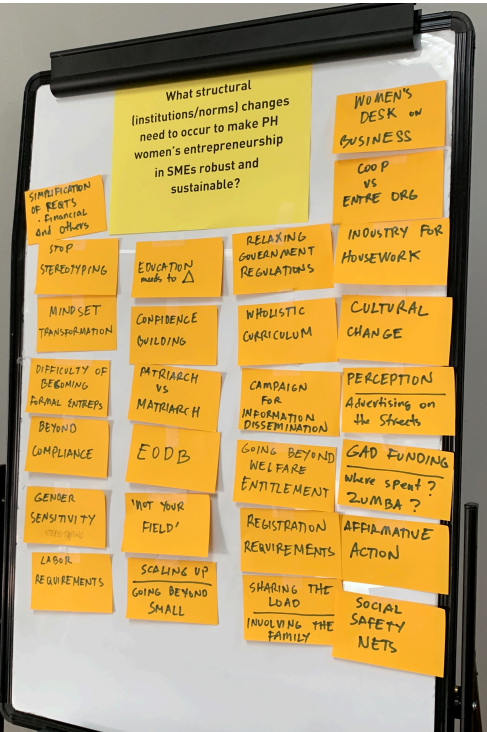 What structural
(institutions/norms) changes
need to occur to make PH
women's entrepreneurship
in SMEs robust and
sustainable?
SIMPLIFICATION
OF REQTS
· Financial
And others
STOP
STEREOTYPING
MINDSET
TRANSFORMATION
DIFFICULTY OF
BECOMING
FORMAL ENTREPS
BEYOND
COMPLIANCE
GENDER
SENSITIVITY
LABOR
REQUIREMENTS
EDUCATION
needs to △
CONFIDENCE
BUILDING
PATRIARCH
VS
MATRIARCH
EODB
'NOT YOUR
FIELD'
SCALING UP
GOING BEYOND
SMALL
RELAXING
GOVERNMENT
REGULATIONS
WHOLISTIC
CURRICULUM
CAMPAIGN
FOR
INFORMATION
DISSEMINATION
GOING BEYOND
WELFARE
ENTITLEMENT
REGISTRATION
REQUIREMENTS
SHARING THE
LOAD
INVOLVING THE
FAMILY
WOMEN'S
DESK ON
BUSINESS
COOP
VS
ENTRE ORG
INDUSTRY FOR
HOUSEWORK
CULTURAL
CHANGE
PERCEPTION
Advertising on
the Streets
GAD FUNDING
where spent?
ZUMBA?
AFFIRMATIVE
ACTION
SOCIAL
SAFETY
NETS